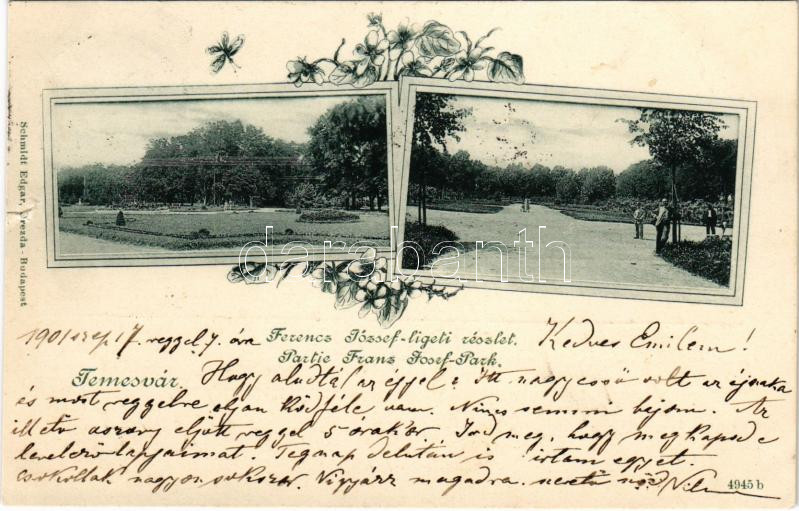 Schmidt Edgar, Drezda - Budapest
darabanth
1901 szep 17. reggel 7. óra
Ferencz József-ligeti részlet.
Partie Franz Josef-Park.
Kedves Emilem!
Temesvár.
Hogy aludtál az éjjel? Itt nagy eső volt az éjszaka
és most reggelre olyan ködféle van. Nincs semmi bajom. Az
illető asszony eljött reggel 5 órakor Írd meg, hogy megkapod e
levelezőlapjaimat. Tegnap délután is írtam egyet.
csókollak nagyon sokszor. Vigyázz magadra. szerető nőd Vilma
4945 b